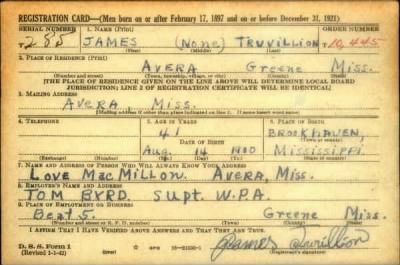 REGISTRATION CARD—(Men born on or after February 17, 1897 and on or before December 31, 1921)
SERIAL NUMBER 1. NAME (Print) ORDER NUMBER
T 285 JAMES (None) TRUVILLION T10,445
(First) (Middle) (Last)
2. PLACE OF RESIDENCE (Print)
AVERA Greene Miss.
(Number and street) (Town, township, village, or city) (County) (State)
[THE PLACE OF RESIDENCE GIVEN ON THE LINE ABOVE WILL DETERMINE LOCAL BOARD
JURISDICTION; LINE 2 OF REGISTRATION CERTIFICATE WILL BE IDENTICAL]
3. MAILING ADDRESS
AVERA Miss.
[Mailing address if other than place indicated on line 2. If same insert word same]
4. TELEPHONE 5. AGE IN YEARS 6. PLACE OF BIRTH
41 BROOKHAVEN,
DATE OF BIRTH (Town or county)
Aug. 14 1900 MISSISSIPPI
(Exchange) (Number) (Mo.) (Day) (Yr.) (State or country)
7. NAME AND ADDRESS OF PERSON WHO WILL ALWAYS KNOW YOUR ADDRESS
LOVE MacMILLON. AVERA, MISS.
8. EMPLOYER'S NAME AND ADDRESS
TOM BYRD. SUPT. W.P.A.
9. PLACE OF EMPLOYMENT OR BUSINESS
Beat 5. Greene Miss.
(Number and street or R. F. D. number) (Town) (County) (State)
I AFFIRM THAT I HAVE VERIFIED ABOVE ANSWERS AND THAT THEY ARE TRUE.
D. S. S. Form 1
(Revised 1-1-42) James Truvillion
(Registrant's signature)